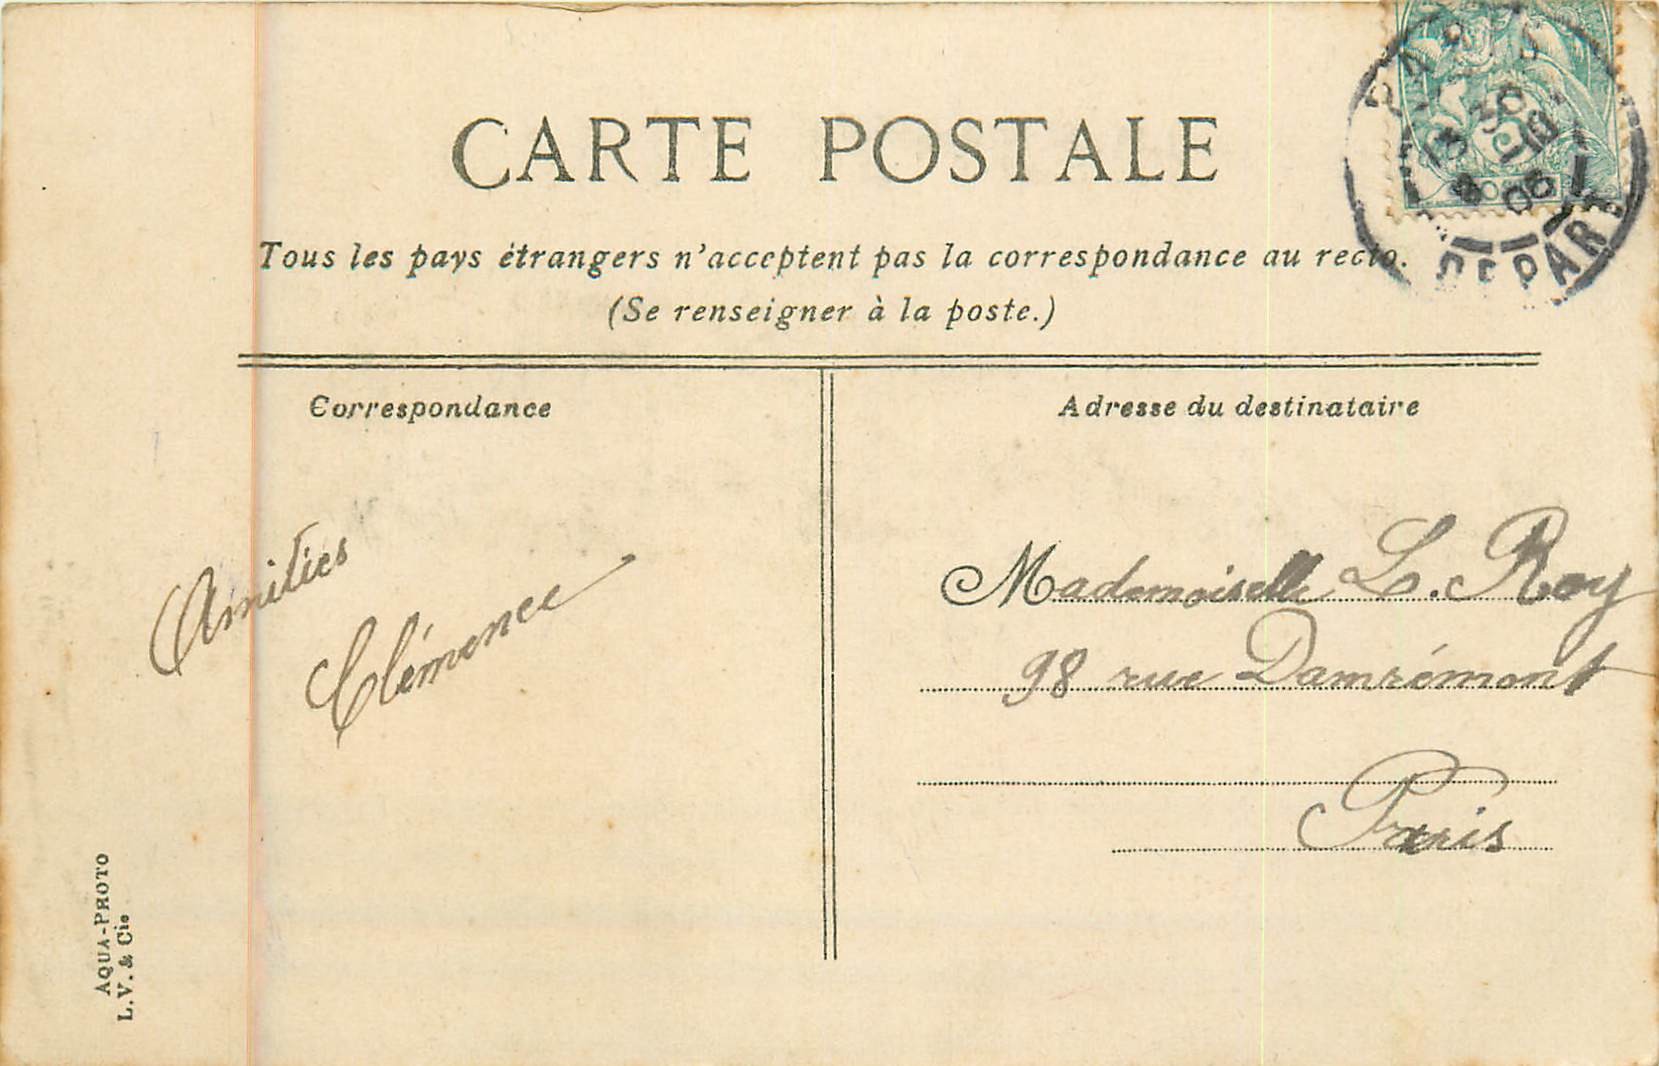 CARTE POSTALE
Tous les pays étrangers n'acceptent pas la correspondance au recto.
(Se renseigner à la poste.)
Correspondance
Adresse du destinataire
Amitiés
Clémence
Mademoiselle L. Roy
98 rue Damrémont
Paris
AQUA-PHOTO
L.V. & Cie
PARIS
DEPART